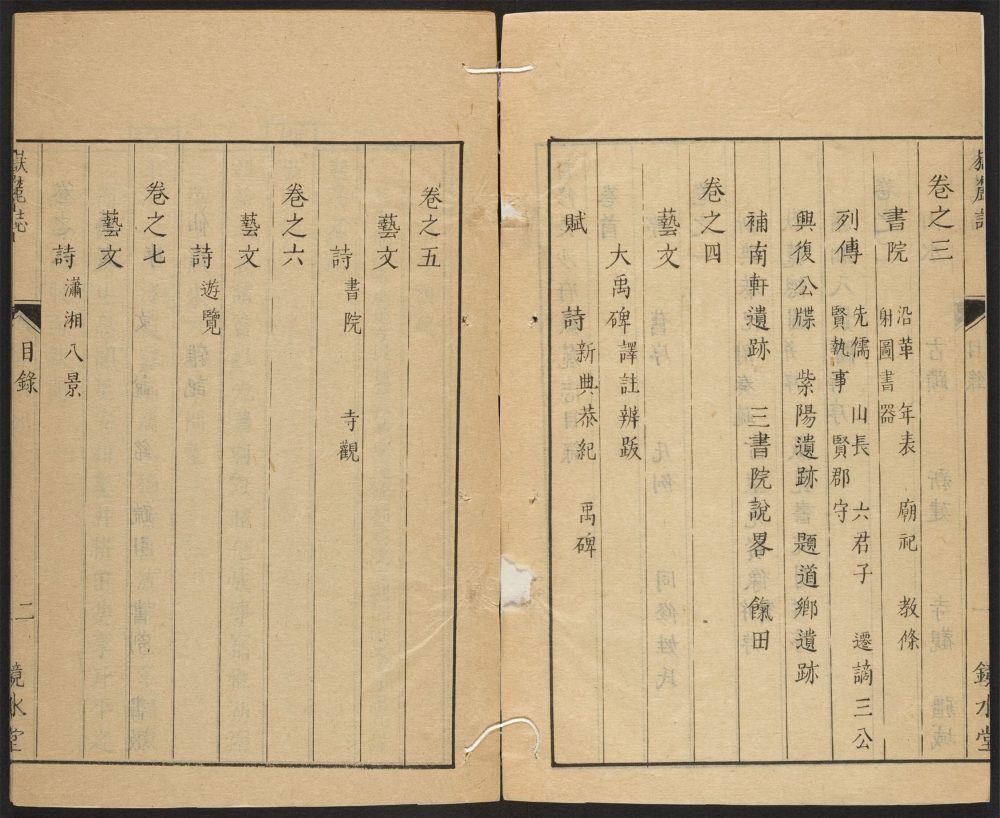 卷之三
書院 沿革 年表 廟祀 教條
射圃書器
列傳 先儒 山長 六君子 遷謫三公
賢執事 賢郡守
興復公牒 紫陽遺跡 題道鄉遺跡
補南軒遺跡 三書院說畧 餼田
卷之四
藝文
大禹碑譯註辨跋
賦 詩 新典恭紀 禹碑
卷之五
藝文
詩 書院 寺觀
卷之六
藝文
詩 遊覽
卷之七
藝文
詩 瀟湘八景
嶽麓誌 目錄 二 鏡水堂